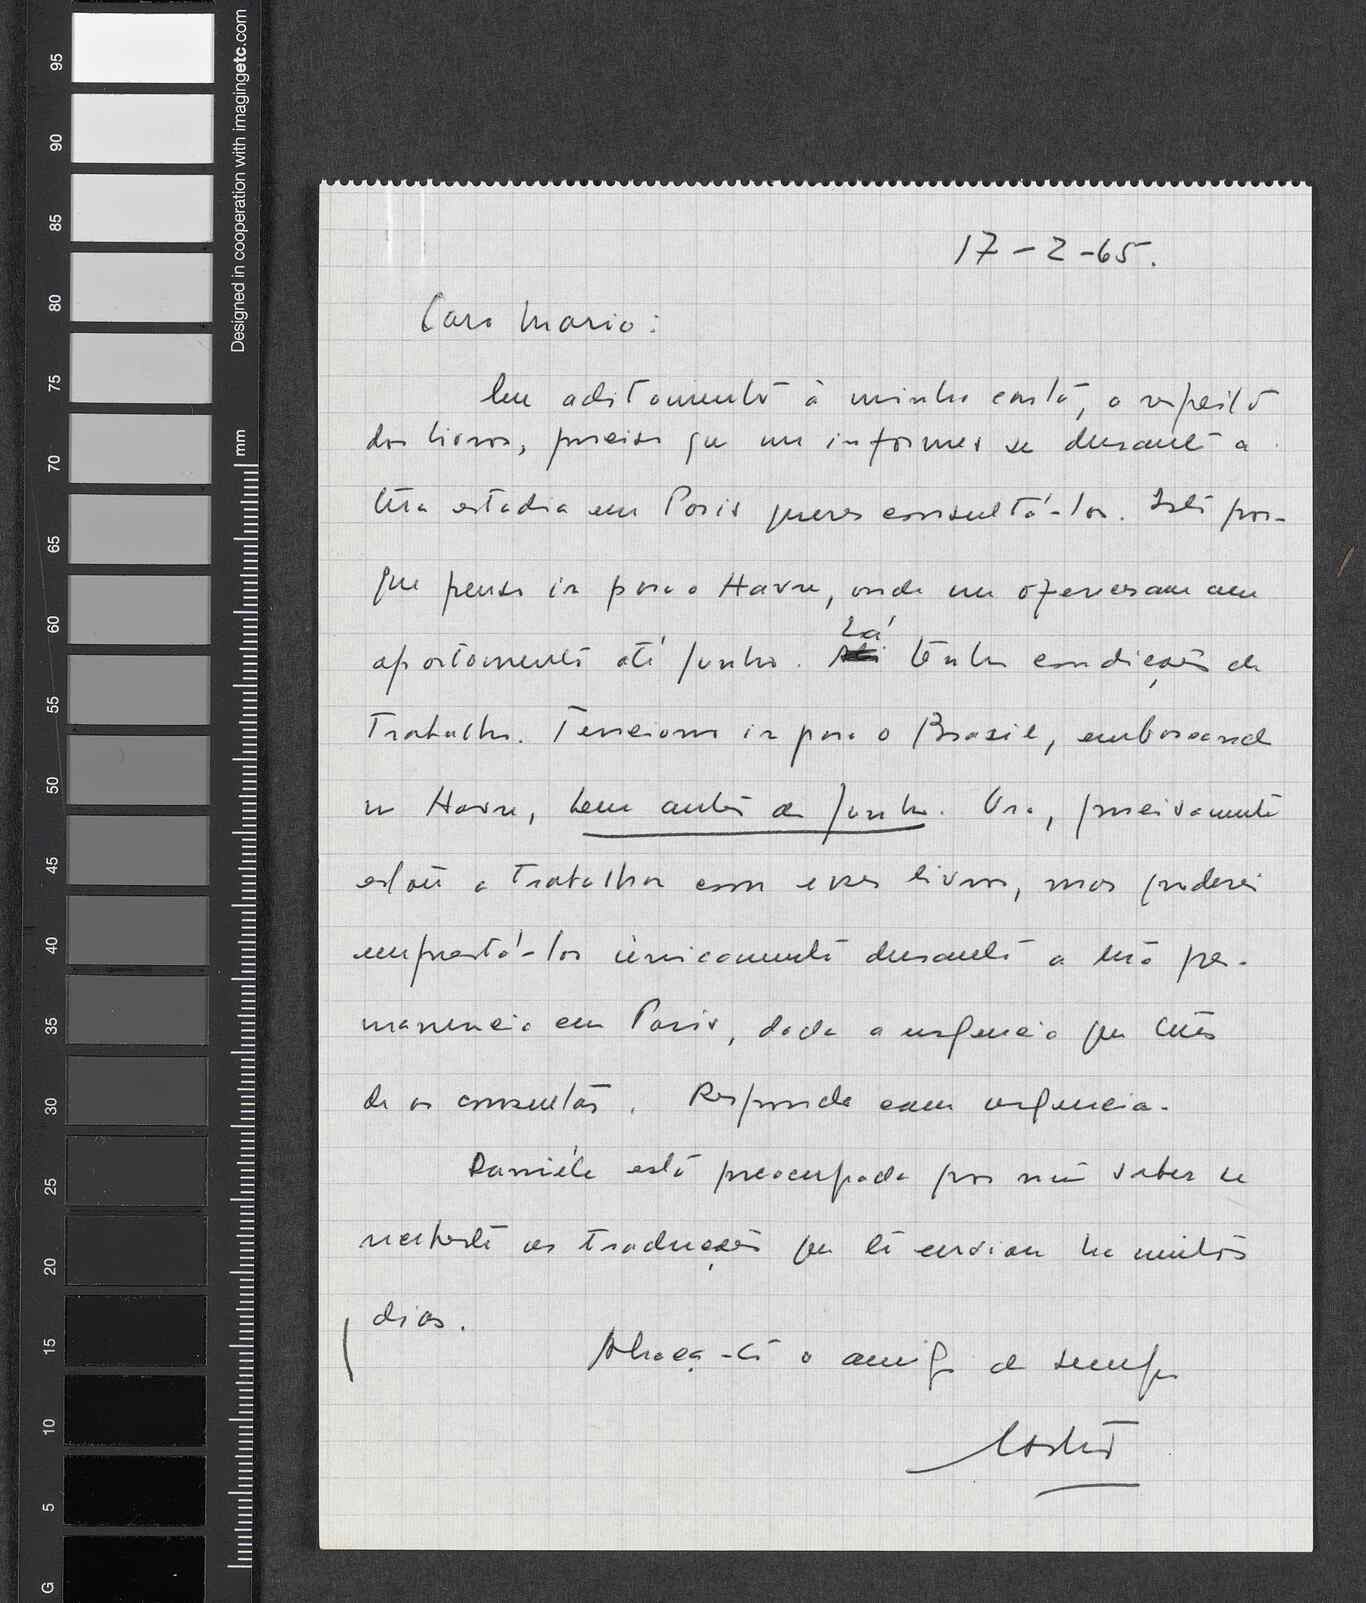 Designed in cooperation with imagingetc.com
mm
95
90
85
80
75
70
65
60
55
50
45
40
35
30
25
20
15
10
5
G
17-2-65.
Caro Mario:
Em aditamento à minha carta, a respeito
dos livros, preciso que me informes se durante a
tua estadia em Paris queres consultá-los. Isto por-
que penso ir para o Havre, onde me ofereceram um
apartamento até junho. Lá tenho condições de
trabalho. Tenciono ir para o Brasil, embarcando
no Havre, bem antes de junho. Ora, precisamente
estou a trabalhar com esses livros, mas poderei
emprestá-los unicamente durante a tua per-
manencia em Paris, dada a urgencia que tens
de os consultar. Responde com urgencia.
Danièle está preocupada por não saber se
recebeste as traduções que te enviou ha muitos
dias.
Abraça-te o amigo de sempre